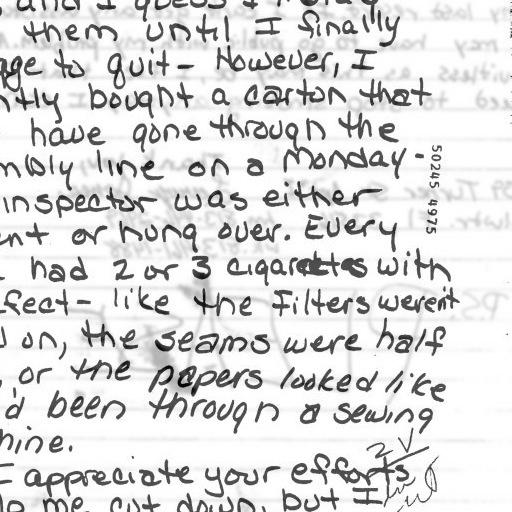 and I guess I
them until I finally
age to quit - However, I
ntly bought a carton that
have gone through the
mbly line on a Monday -
inspector was either
ent or hung over. Every
had 2 or 3 cigarettes with
fect - like the filters weren't
on, the seams were half
, or the papers looked like
'd been through a sewing
hine.
I appreciate your efforts
lp me cut down, but I
50245 4975